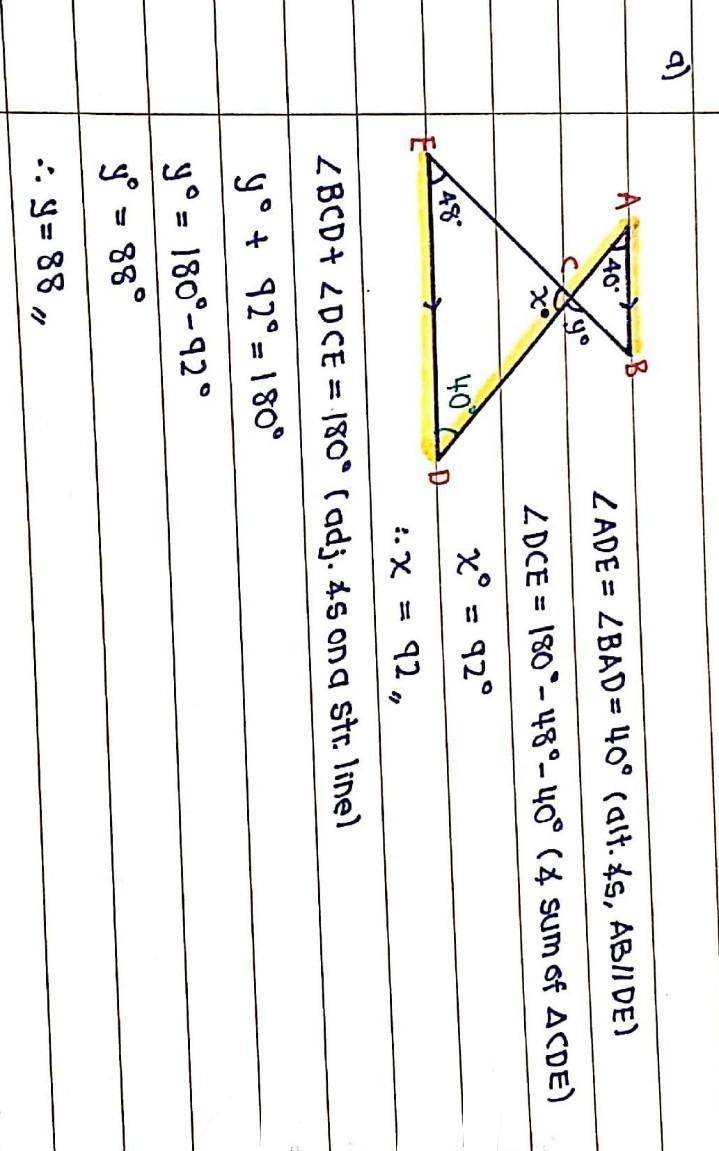 a)
A
40°
B
C
x°
y°
E
48°
40°
D
∠ADE = ∠BAD = 40° (alt. ∡s, AB//DE)
∠DCE = 180° - 48° - 40° (∡ sum of △CDE)
x° = 92°
∴ x = 92 〃
∠BCD + ∠DCE = 180° (adj. ∡s on a str. line)
y° + 92° = 180°
y° = 180° - 92°
y° = 88°
∴ y = 88 〃